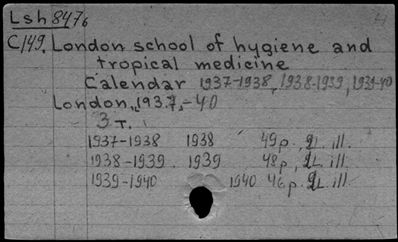 Lsh 8476
C149. London school of hygiene and
tropical medicine
Calendar 1937-1938, 1938-1939, 1939-40
London, 1937,-40
3 т.
1937-1938 1938 49p., 2L. ill.
1938-1939 1939 48p, 2L. ill.
1939-1940 1940 46p. 2L. ill.